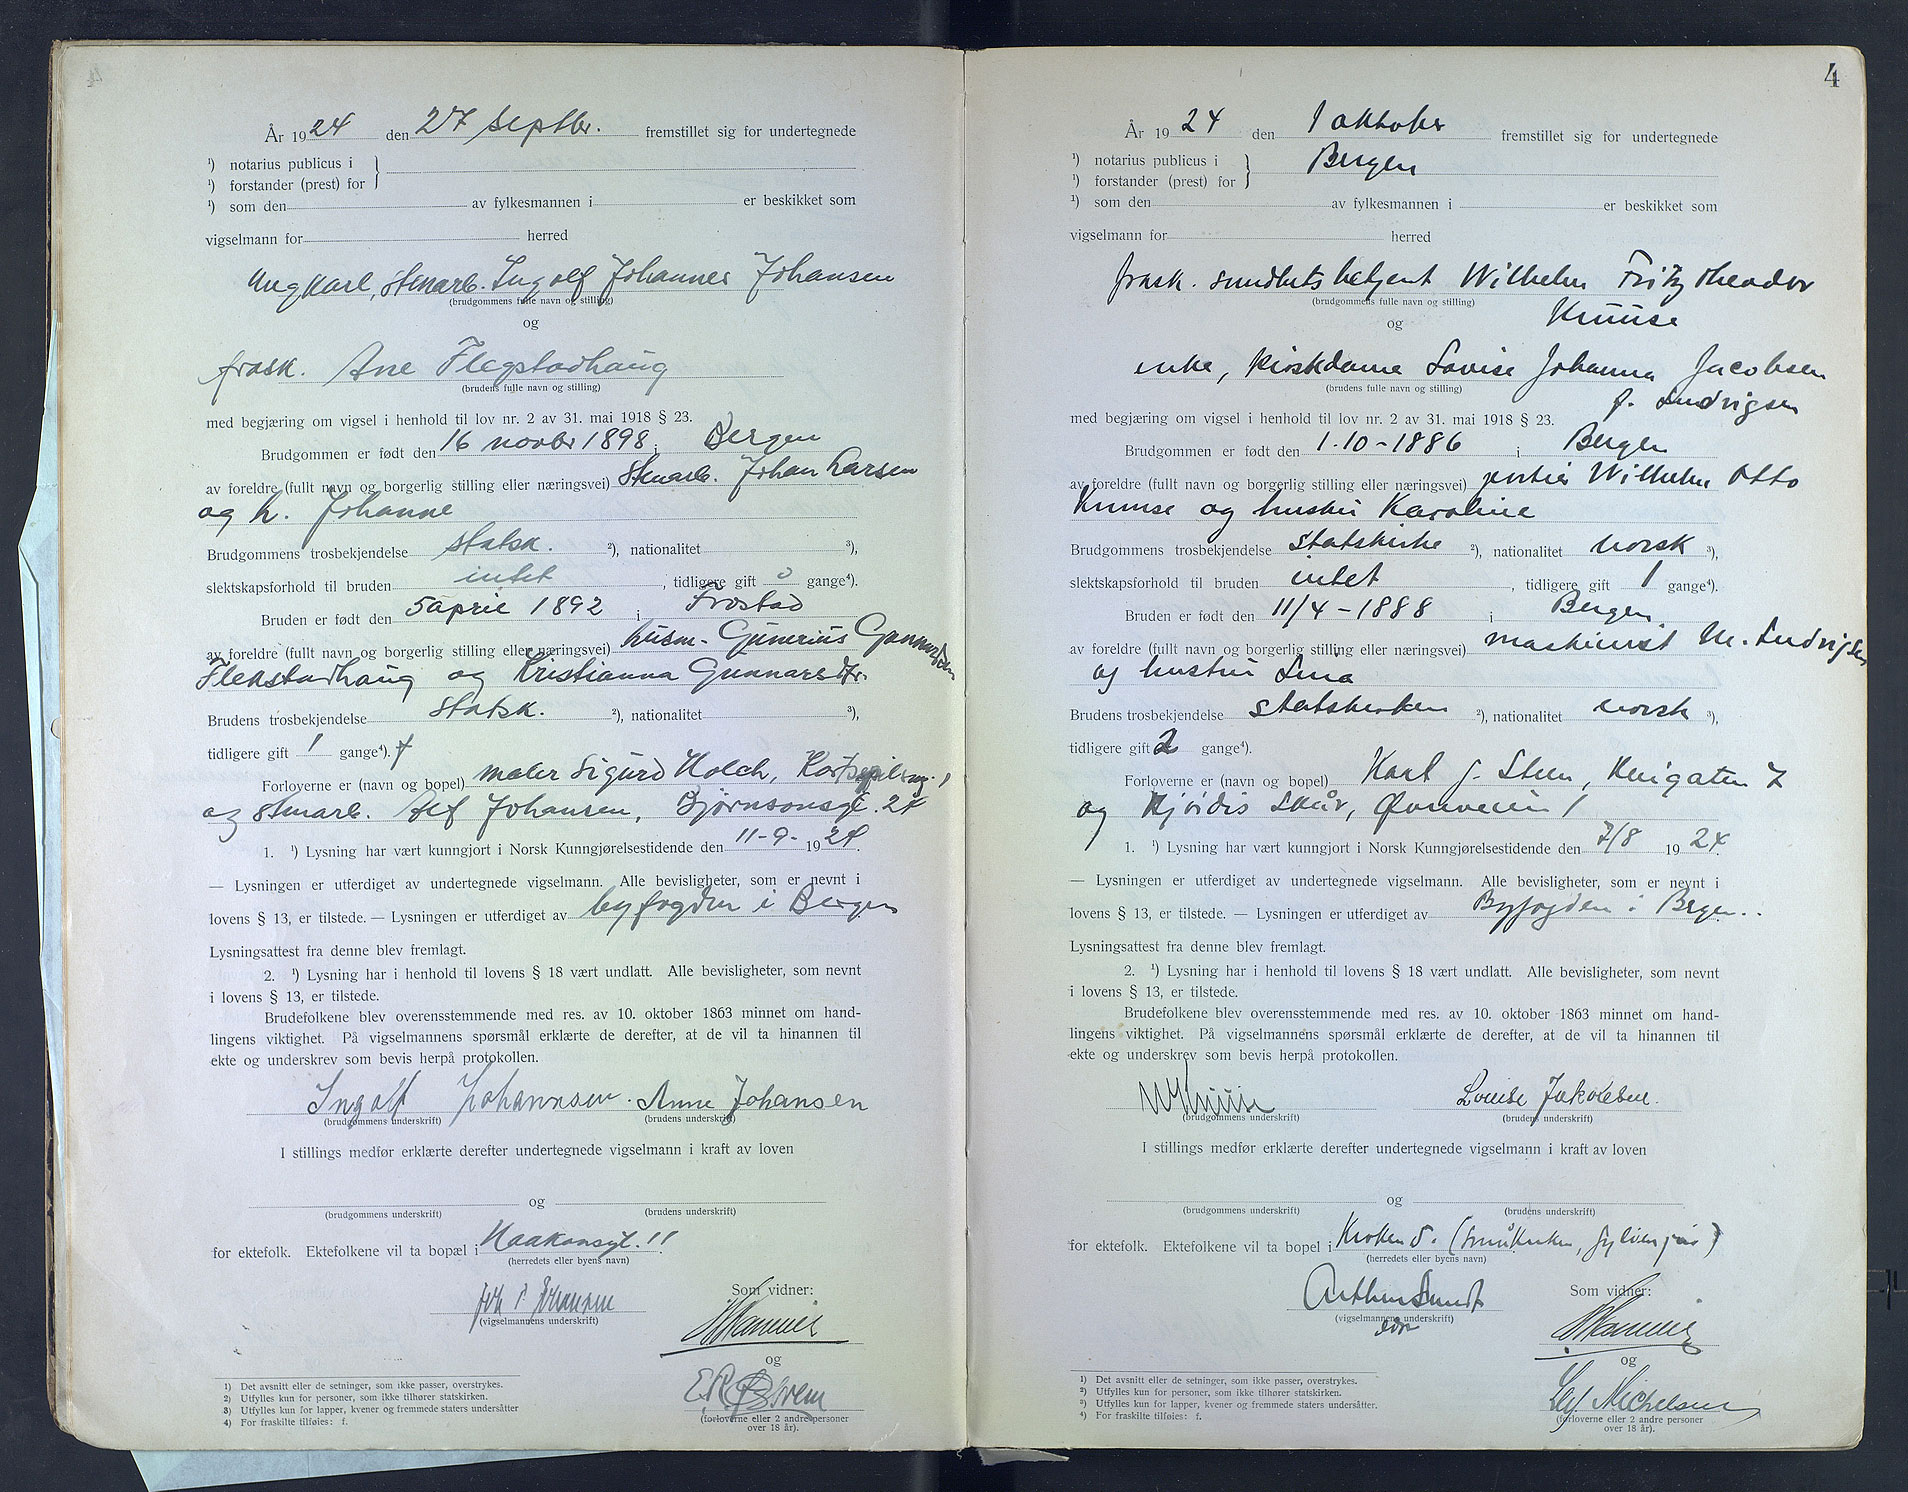 År 1924 den 27 septbr. fremstillet sig for undertegnede
¹) notarius publicus i
¹) forstander (prest) for
¹) som den av fylkesmannen i er beskikket som
vigselmann for herred
Ungkarl, stmarb. Ingolf Johannes Johansen
(brudgommens fulle navn og stilling)
og
frask. Ane Flegstadhaug
(brudens fulle navn og stilling)
med begjæring om vigsel i henhold til lov nr. 2 av 31. mai 1918 § 23.
Brudgommen er født den 16 novbr 1898 i Bergen
av foreldre (fullt navn og borgerlig stilling eller næringsvei) stmarb. Johan Larsen
og h. Johanne
Brudgommens trosbekjendelse statsk. ²), nationalitet ³),
slektskapsforhold til bruden intet, tidligere gift 0 gange⁴).
Bruden er født den 5 april 1892 i Frostad
av foreldre (fullt navn og borgerlig stilling eller næringsvei) husm. Gunerius
Flekstadhaug og Kristianna Gunnarsdtr.
Brudens trosbekjendelse statsk. ²), nationalitet ³),
tidligere gift 1 gange⁴). f
Forloverne er (navn og bopel) maler Sigurd Holch,
og stmarb. Alf Johansen, Bjørnsonsgt. 24
1. ¹) Lysning har vært kunngjort i Norsk Kunngjørelsestidende den 11-9-1924.
— Lysningen er utferdiget av undertegnede vigselmann. Alle bevisligheter, som er nevnt i
lovens § 13, er tilstede. — Lysningen er utferdiget av byfogden i Bergen
Lysningsattest fra denne blev fremlagt.
2. ¹) Lysning har i henhold til lovens § 18 vært undlatt. Alle bevisligheter, som nevnt
i lovens § 13, er tilstede.
Brudefolkene blev overensstemmende med res. av 10. oktober 1863 minnet om hand-
lingens viktighet. På vigselmannens spørsmål erklærte de derefter, at de vil ta hinannen til
ekte og underskrev som bevis herpå protokollen.
Ingolf Johannsen. Anne Johansen
(brudgommens underskrift) (brudens underskrift)
I stillings medfør erklærte derefter undertegnede vigselmann i kraft av loven
og
(brudgommens underskrift) (brudens underskrift)
for ektefolk. Ektefolkene vil ta bopæl i Haakonsgt. 11
(herredets eller byens navn)
Som vidner:
(vigselmannens underskrift)
og
(forloverne eller 2 andre personer
over 18 år).
1) Det avsnitt eller de setninger, som ikke passer, overstrykes.
2) Utfylles kun for personer, som ikke tilhører statskirken.
3) Utfylles kun for lapper, kvener og fremmede staters undersåtter
4) For fraskilte tilføies: f.
4
År 1924 den 1 oktober fremstillet sig for undertegnede
¹) notarius publicus i Bergen
¹) forstander (prest) for
¹) som den av fylkesmannen i er beskikket som
vigselmann for herred
frask. sundhetsbetjent Wilhelm Fritz Theodor
(brudgommens fulle navn og stilling)
og Knuuse
enke, kioskdame Lovise Johanna Jacobsen
(brudens fulle navn og stilling)
f. Ludvigsen
med begjæring om vigsel i henhold til lov nr. 2 av 31. mai 1918 § 23.
Brudgommen er født den 1-10-1886 i Bergen
av foreldre (fullt navn og borgerlig stilling eller næringsvei) portier Wilhelm Otto
Knuuse og hustru Karoline
Brudgommens trosbekjendelse statskirke ²), nationalitet norsk ³),
slektskapsforhold til bruden intet, tidligere gift 1 gange⁴).
Bruden er født den 11/4-1888 i Bergen
av foreldre (fullt navn og borgerlig stilling eller næringsvei) maskinist M. Ludvigsen
og hustru Lina
Brudens trosbekjendelse statskirken ²), nationalitet norsk ³),
tidligere gift 2 gange⁴).
Forloverne er (navn og bopel) Karl J. Steen, 7
og Hjørdis Skår, 1
1. ¹) Lysning har vært kunngjort i Norsk Kunngjørelsestidende den 7/8 1924.
— Lysningen er utferdiget av undertegnede vigselmann. Alle bevisligheter, som er nevnt i
lovens § 13, er tilstede. — Lysningen er utferdiget av Byfogden i Bergen.
Lysningsattest fra denne blev fremlagt.
2. ¹) Lysning har i henhold til lovens § 18 vært undlatt. Alle bevisligheter, som nevnt
i lovens § 13, er tilstede.
Brudefolkene blev overensstemmende med res. av 10. oktober 1863 minnet om hand-
lingens viktighet. På vigselmannens spørsmål erklærte de derefter, at de vil ta hinannen til
ekte og underskrev som bevis herpå protokollen.
W Knuuse Louise Jakobsen.
(brudgommens underskrift) (brudens underskrift)
I stillings medfør erklærte derefter undertegnede vigselmann i kraft av loven
og
(brudgommens underskrift) (brudens underskrift)
for ektefolk. Ektefolkene vil ta bopel i Kroken 5.
(herredets eller byens navn)
Arthur Sundt Som vidner:
(vigselmannens underskrift)
og
Leif Michelsen
(forloverne eller 2 andre personer
over 18 år).
¹) Det avsnitt eller de setninger, som ikke passer, overstrykes.
²) Utfylles kun for personer, som ikke tilhører statskirken.
³) Utfylles kun for lapper, kvener og fremmede staters undersåtter.
⁴) For fraskilte tilføies: f.